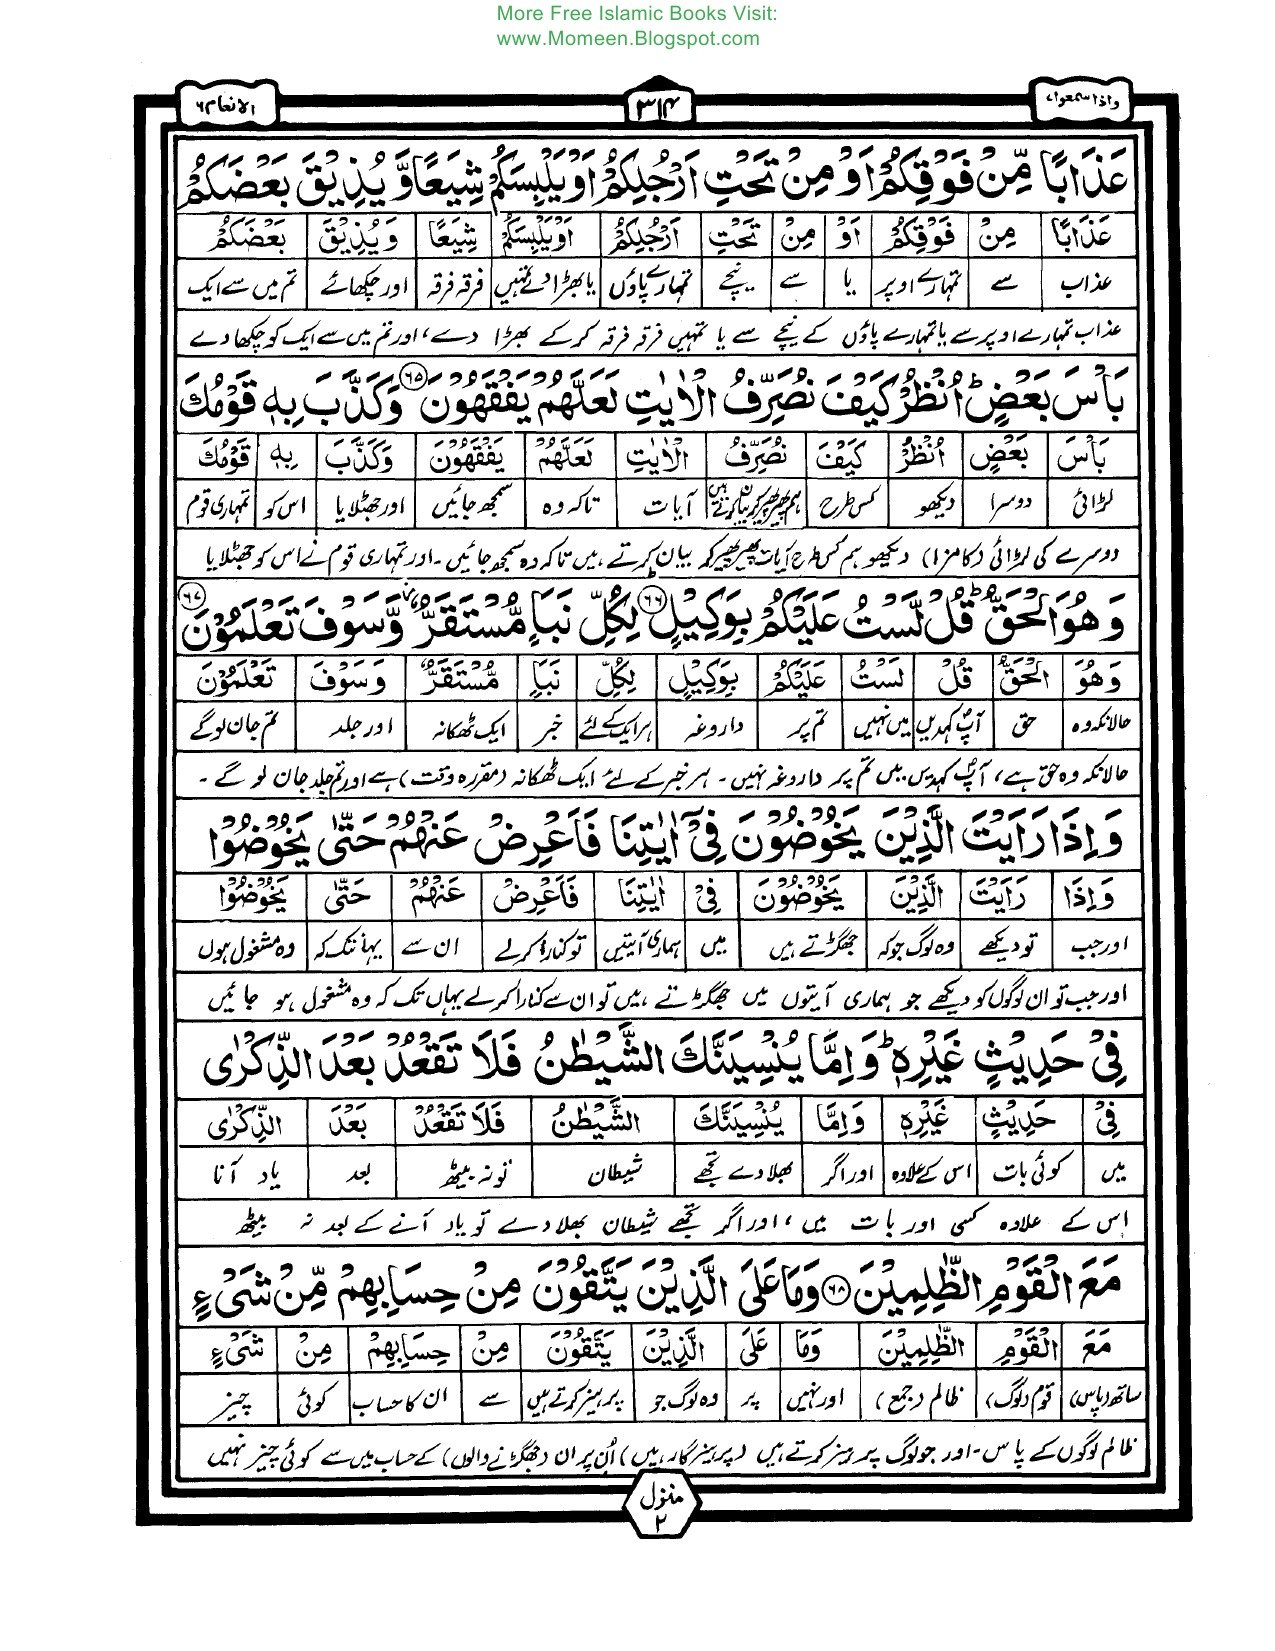 More Free Islamic Books Visit:
www.Momeen.Blogspot.com
واذا سمعوا ۷ ۳۱۴ الانعام ۶
عَذَابًا مِّنْ فَوْقِكُمْ اَوْ مِنْ تَحْتِ اَرْجُلِكُمْ اَوْ يَلْبِسَكُمْ شِيَعًا وَّ يُذِيْقَ بَعْضَكُمْ
عَذَابًا مِنْ فَوْقِكُمْ اَوْ مِنْ تَحْتِ اَرْجُلِكُمْ اَوْيَلْبِسَكُمْ شِيَعًا وَيُذِيْقَ بَعْضَكُمْ
عذاب سے تمہارے اوپر یا سے نیچے تمہارے پاؤں یا بھڑا دے تمہیں فرقہ فرقہ اور چکھائے تم میں سے ایک
عذاب تمہارے اوپر سے یا تمہارے پاؤں کے نیچے سے یا تمہیں فرقہ فرقہ کرکے بھڑا دے، اور تم میں سے ایک کو چکھا دے
بَاْسَ بَعْضٍ ؕ اُنْظُرْ كَيْفَ نُصَرِّفُ الْاٰيٰتِ لَعَلَّهُمْ يَفْقَهُوْنَ ۶۵ وَكَذَّبَ بِهٖ قَوْمُكَ
بَاْسَ بَعْضٍ اُنْظُرْ كَيْفَ نُصَرِّفُ الْاٰيٰتِ لَعَلَّهُمْ يَفْقَهُوْنَ وَكَذَّبَ بِهٖ قَوْمُكَ
لڑائی دوسرا دیکھو کس طرح ہم پھیر پھیر کر بیان کرتے ہیں آیات تاکہ وہ سمجھ جائیں اور جھٹلایا اس کو تمہاری قوم
دوسرے کی لڑائی (کا مزا) دیکھو ہم کس طرح آیات پھیر پھیر کر بیان کرتے ہیں تاکہ وہ سمجھ جائیں۔ اور تمہاری قوم نے اس کو جھٹلایا
وَهُوَ الْحَقُّ ؕ قُلْ لَّسْتُ عَلَيْكُمْ بِوَكِيْلٍ ۶۶ لِكُلِّ نَبَاٍ مُّسْتَقَرٌّ ز وَّسَوْفَ تَعْلَمُوْنَ ۶۷
وَهُوَ الْحَقُّ قُلْ لَسْتُ عَلَيْكُمْ بِوَكِيْلٍ لِكُلِّ نَبَاٍ مُّسْتَقَرٌّ وَسَوْفَ تَعْلَمُوْنَ
حالانکہ وہ حق آپؐ کہدیں میں نہیں تم پر داروغہ ہر ایک کے لئے خبر ایک ٹھکانہ اور جلد تم جان لوگے
حالانکہ وہ حق ہے، آپؐ کہدیں میں تم پر داروغہ نہیں۔ ہر خبر کے لئے ایک ٹھکانہ (مقررہ وقت) ہے اور تم جلد جان لو گے۔
وَاِذَا رَاَيْتَ الَّذِيْنَ يَخُوْضُوْنَ فِيْۤ اٰيٰتِنَا فَاَعْرِضْ عَنْهُمْ حَتّٰى يَخُوْضُوْا
وَاِذَا رَاَيْتَ الَّذِيْنَ يَخُوْضُوْنَ فِيْ اٰيٰتِنَا فَاَعْرِضْ عَنْهُمْ حَتّٰى يَخُوْضُوْا
اور جب تو دیکھے وہ لوگ جو کہ جھگڑتے ہیں میں ہماری آیتیں تو کنارا کر لے ان سے یہانتک کہ وہ مشغول ہوں
اور جب تو ان لوگوں کو دیکھے جو ہماری آیتوں میں جھگڑتے ہیں تو ان سے کنارا کر لے یہاں تک کہ وہ مشغول ہو جائیں
فِيْ حَدِيْثٍ غَيْرِهٖ ؕ وَاِمَّا يُنْسِيَنَّكَ الشَّيْطٰنُ فَلَا تَقْعُدْ بَعْدَ الذِّكْرٰى
فِيْ حَدِيْثٍ غَيْرِهٖ وَاِمَّا يُنْسِيَنَّكَ الشَّيْطٰنُ فَلَا تَقْعُدْ بَعْدَ الذِّكْرٰى
میں کوئی بات اس کے علاوہ اور اگر بھلا دے تجھے شیطان تو نہ بیٹھ بعد یاد آنا
اس کے علاوہ کسی اور بات میں، اور اگر تجھے شیطان بھلا دے تو یاد آنے کے بعد نہ بیٹھ
مَعَ الْقَوْمِ الظّٰلِمِيْنَ ۶۸ وَمَا عَلَى الَّذِيْنَ يَتَّقُوْنَ مِنْ حِسَابِهِمْ مِّنْ شَيْءٍ
مَعَ الْقَوْمِ الظّٰلِمِيْنَ وَمَا عَلَى الَّذِيْنَ يَتَّقُوْنَ مِنْ حِسَابِهِمْ مِنْ شَيْءٍ
ساتھ (پاس) قوم (لوگ) ظالم (جمع) اور نہیں پر وہ لوگ جو پرہیز کرتے ہیں سے ان کا حساب کوئی چیز
ظالم لوگوں کے پاس۔ اور جو لوگ پرہیز کرتے ہیں (پرہیزگار ہیں) اُن پر ان (جھگڑنے والوں) کے حساب میں سے کوئی چیز نہیں
منزل
۲